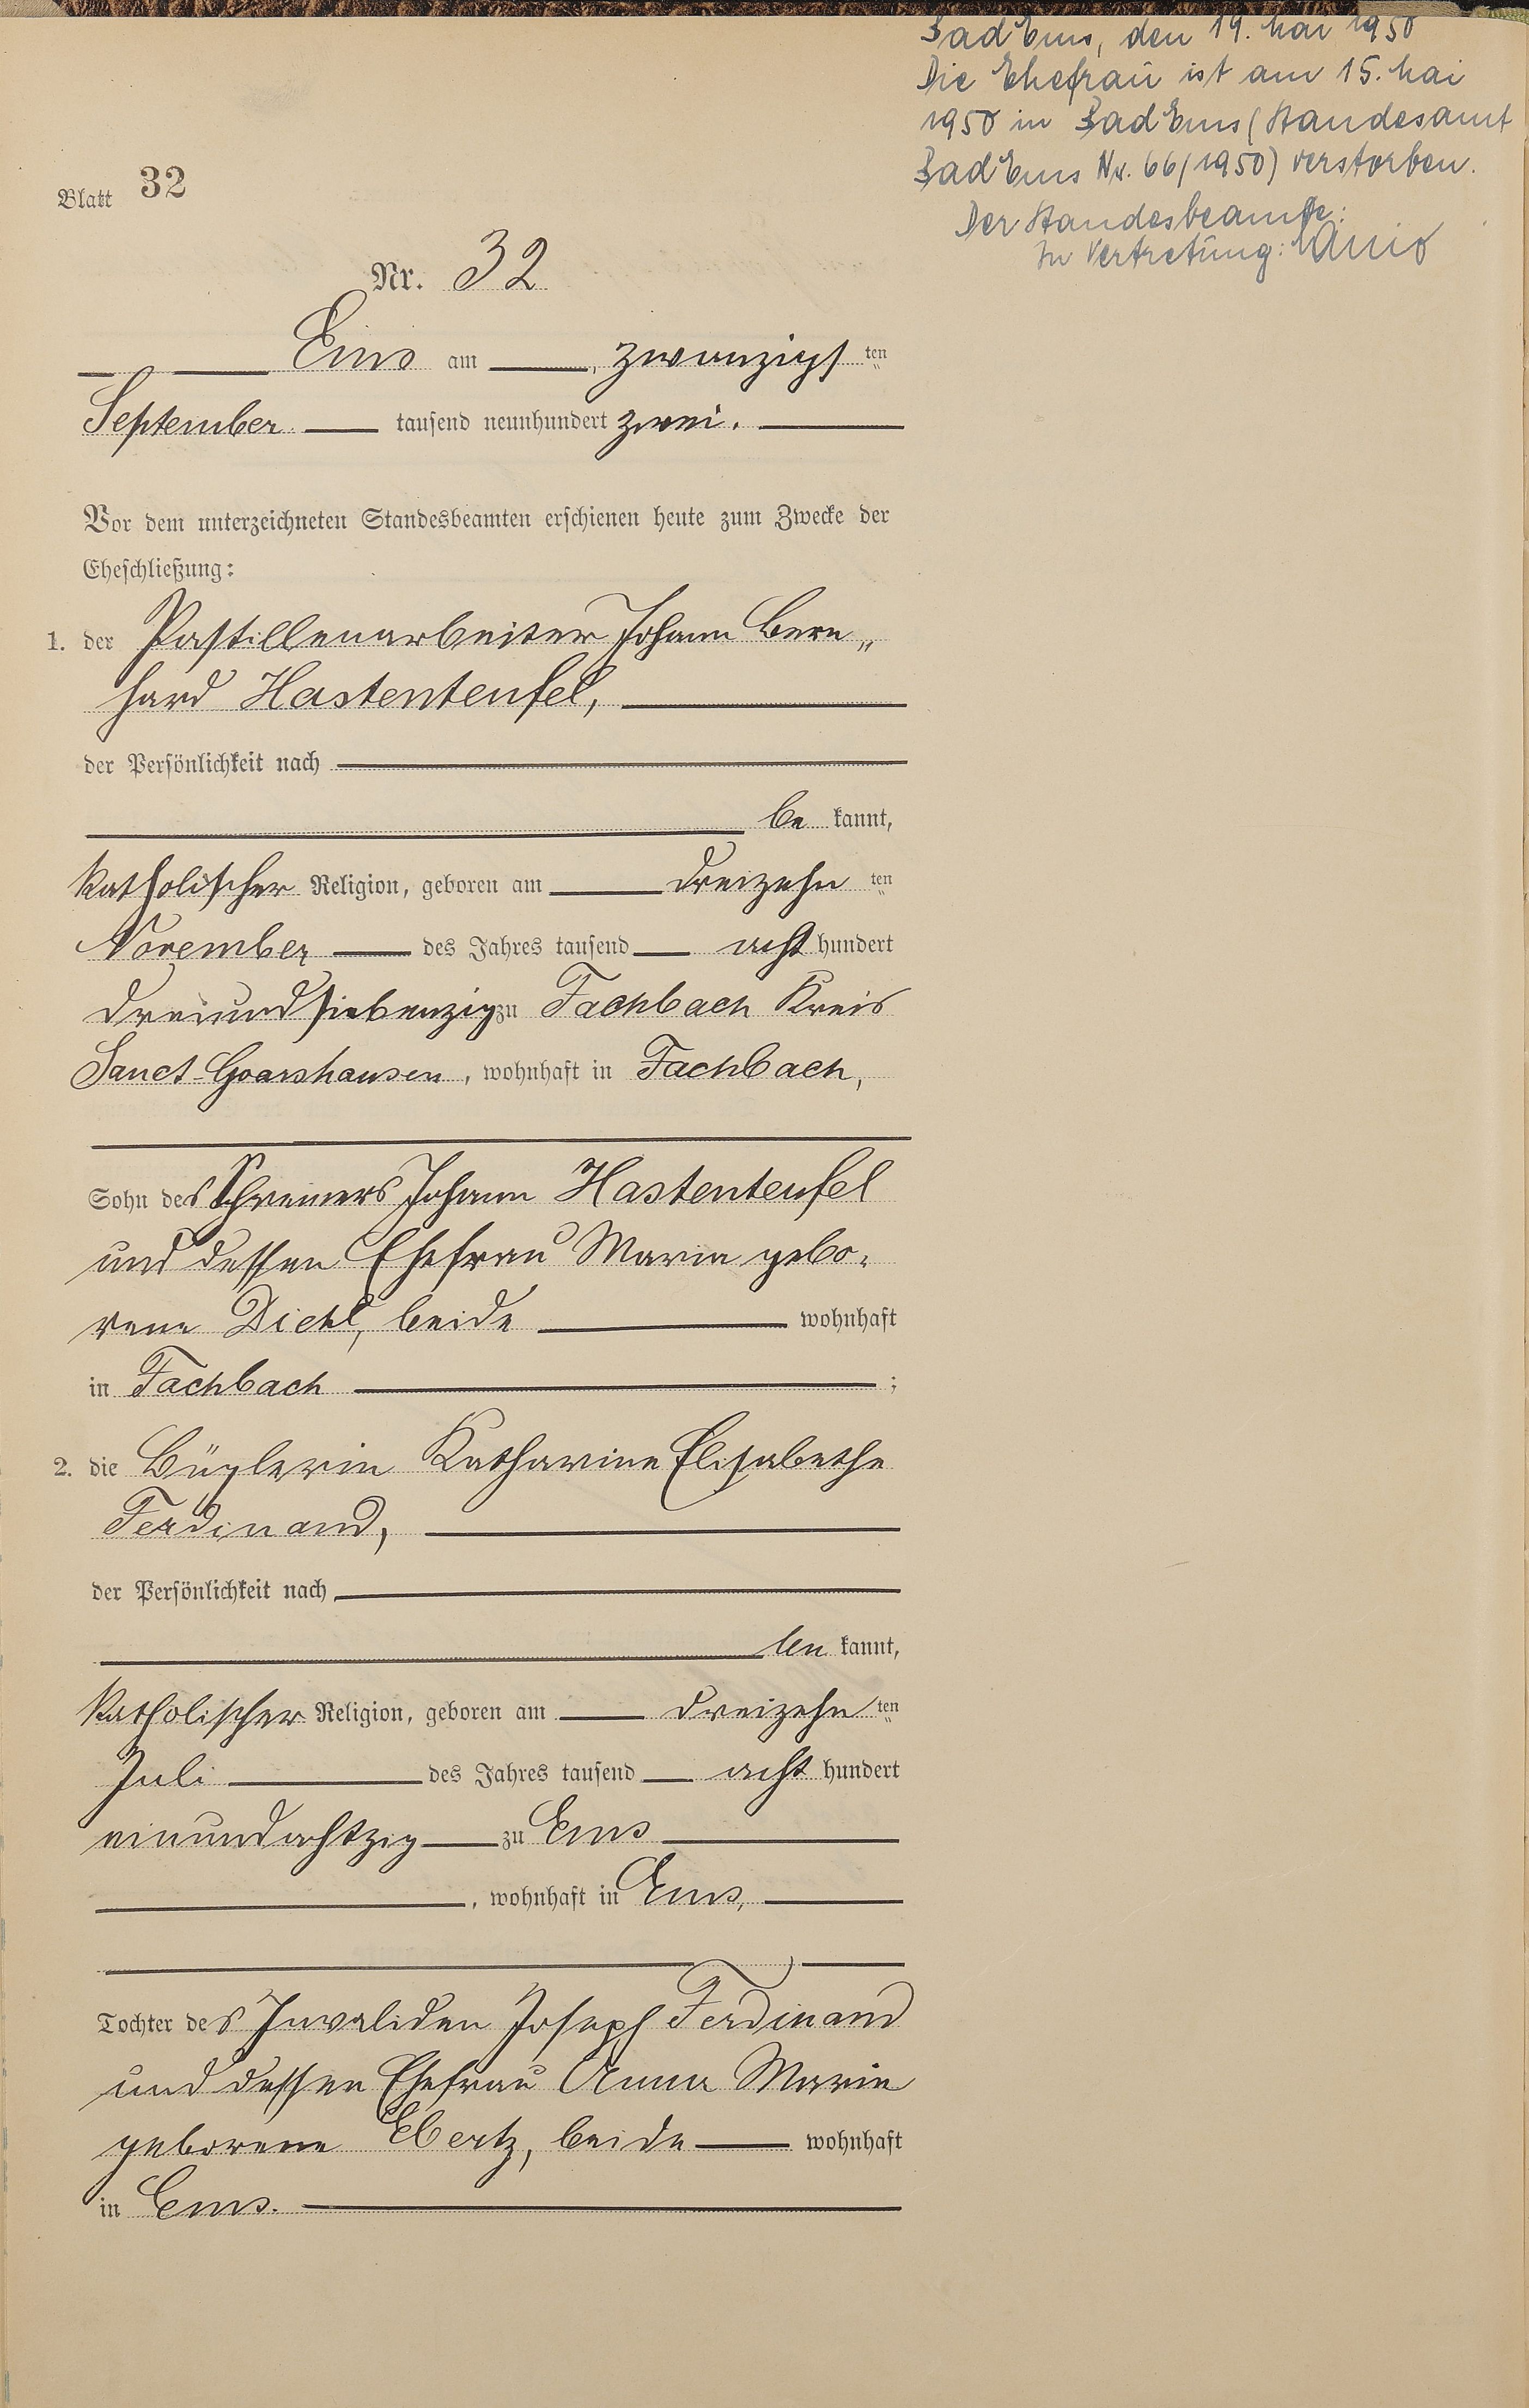 Bad Ems, den 19. Mai 1950
Die Ehefrau ist am 15. Mai
1950 in Bad Ems (Standesamt
Bad Ems Nr. 66/1950) verstorben.
Der Standesbeamte:
In Vertretung:
Blatt 32
Nr. 32
Ems am zwanzigsten
September tausend neunhundert zwei.
Vor dem unterzeichneten Standesbeamten erschienen heute zum Zwecke der
Eheschließung:
1. der Pastillenarbeiter Johann Bern„
hard Hastenteufel,
der Persönlichkeit nach
be kannt,
katholischer Religion, geboren am dreizehnten
November des Jahres tausend acht hundert
dreiundsiebenzig zu Fachbach Kreis
Sanct-Goarshausen, wohnhaft in Fachbach,
Sohn des Schreiners Johann Hastenteufel
und dessen Ehefrau Maria gebo-
rene Diehl, beide wohnhaft
in Fachbach ;
2. die Büglerin Katharine Elisabethe
Ferdinand,
der Persönlichkeit nach
be kannt,
katholischer Religion, geboren am dreizehnten
Juli des Jahres tausend acht hundert
einundachtzig zu Ems
, wohnhaft in Ems,
Tochter des Invaliden Joseph Ferdinand
und dessen Ehefrau Anna Maria
geborene Ebertz, beide wohnhaft
in Ems.